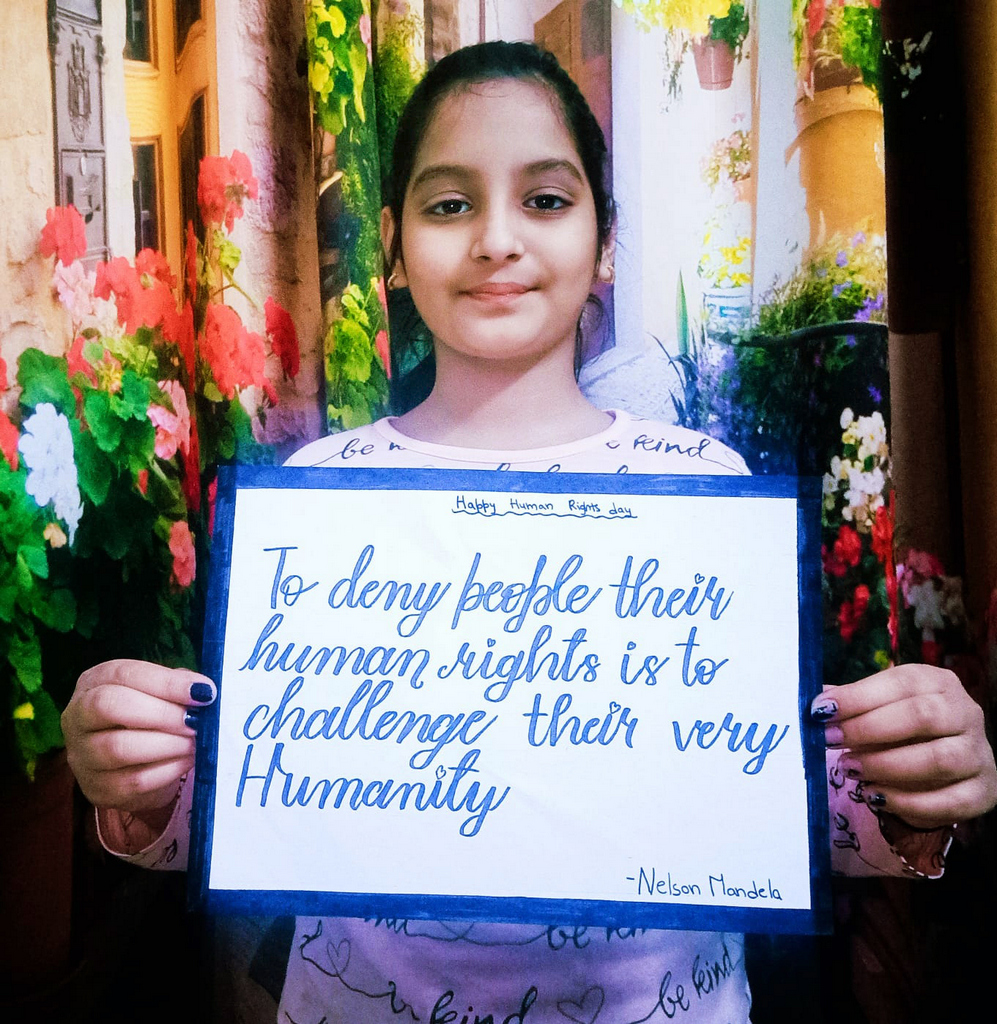 be kind
Happy Human Rights day
To deny people their
human rights is to
challenge their very
Humanity
-Nelson Mandela
be kind
be kind